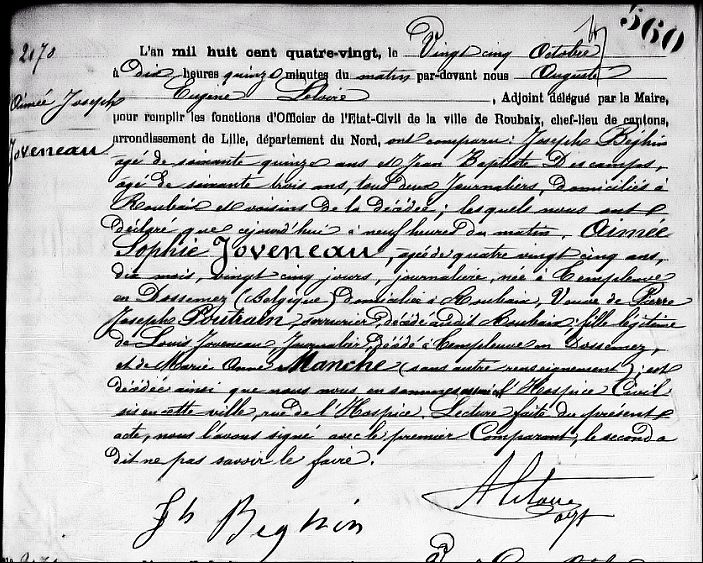 560
2070
L'an mil huit cent quatre-vingt, le Vingt cinq Octobre
à dix heures quinze minutes du matin par-devant nous Auguste
Aimée Joseph
Eugène Letoire, Adjoint délégué par le Maire,
pour remplir les fonctions d'Officier de l'Etat-Civil de la ville de Roubaix, chef-lieu de cantons,
Joveneau
arrondissement de Lille, département du Nord, ont comparu : Joseph Béghin
agé de soixante quinze ans et Jean Baptiste Descamps,
agé de soixante trois ans, tous deux Journaliers, domiciliés à
Roubaix et voisins de la décédée ; lesquels nous ont
déclaré que cejourd'hui à neuf heures du matin, Aimée
Sophie Joveneau, agée de quatre vingt cinq ans,
dix mois, vingt cinq jours, journalière, née à Templeuve
en Dossemez (Belgique) domiciliée à Roubaix, Veuve de Pierre
Joseph Poutrain, serrurier, décédé audit Roubaix ; fille légitime
de Louis Joveneau, Journalier, décédé à Templeuve en Dossemez,
et de Marie Anne Manche (sans autre renseignement) ; est
décédée ainsi que nous nous en sommes assuré à l'Hospice Civil
sis en cette ville, rue de l'Hospice. Lecture faite du présent
acte, nous l'avons signé avec le premier Comparant, le second a
dit ne pas savoir le faire.
Jh Beghin